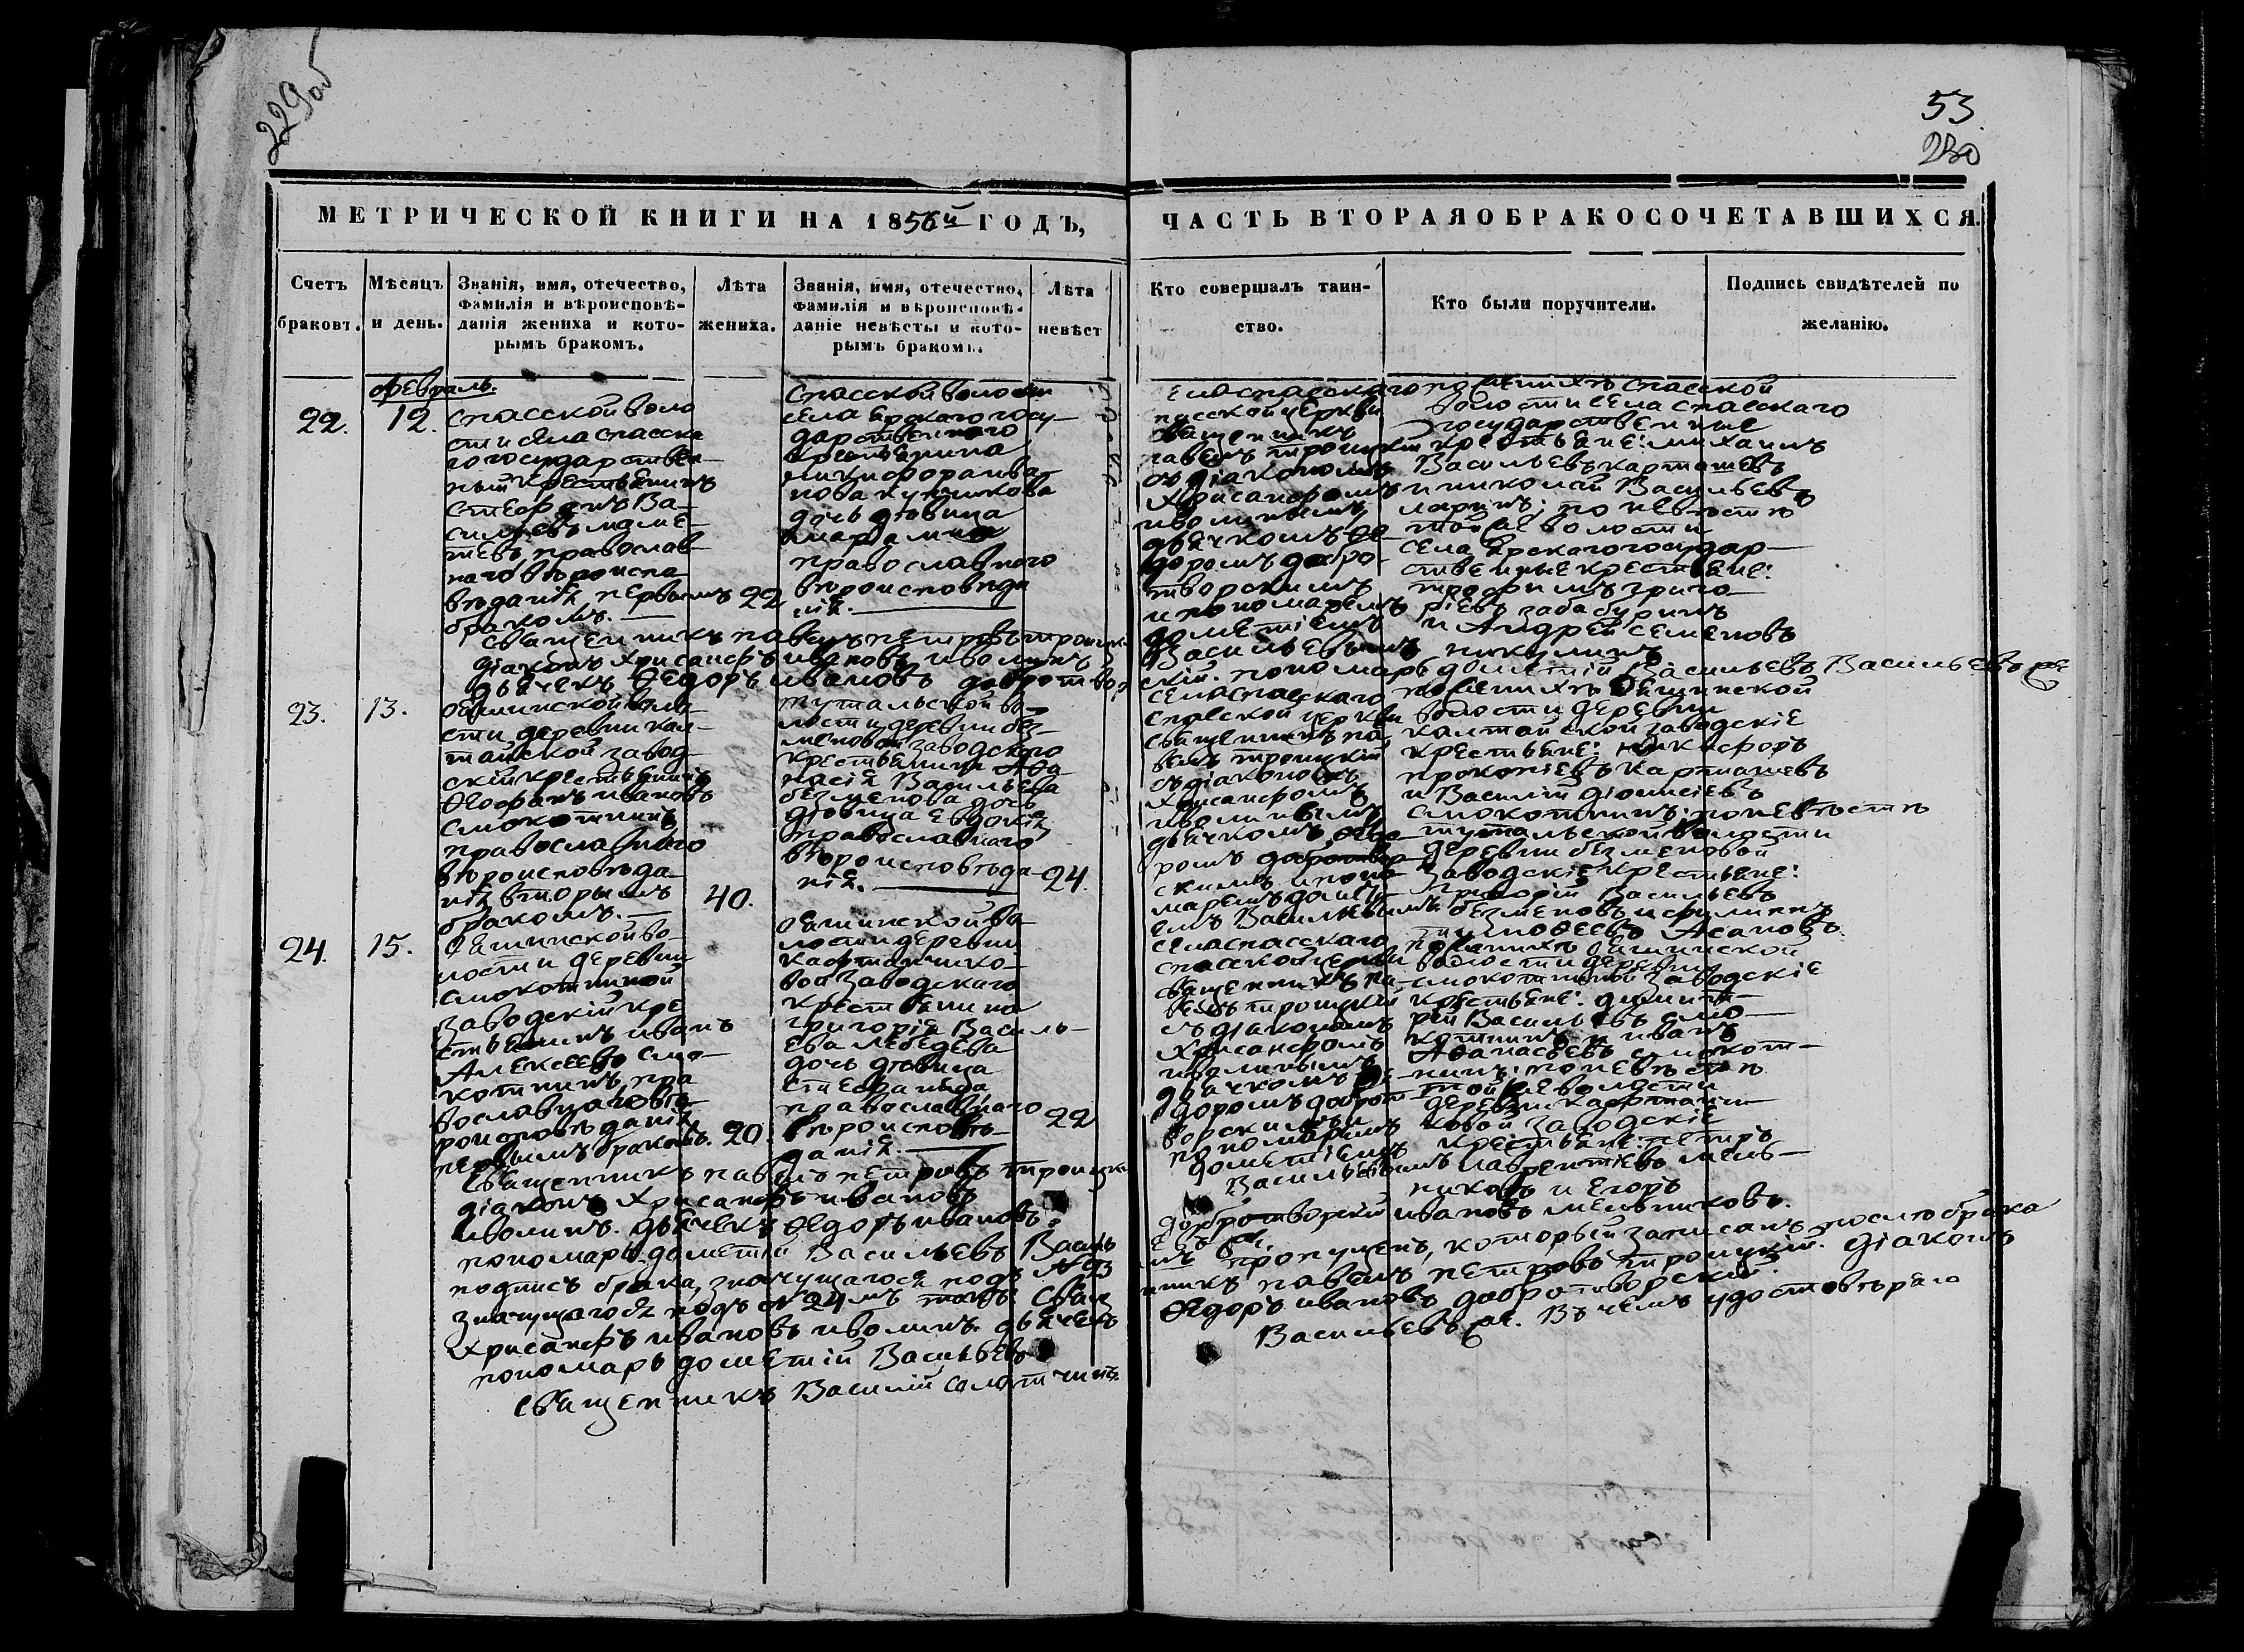 229 об
53
230
МЕТРИЧЕСКОЙ КНИГИ НА 1856й ГОДЪ,
ЧАСТЬ ВТОРАЯ О БРАКОСОЧЕТАВШИХСЯ.
Счетъ браковъ.
Мѣсяцъ и день.
Званія, имя, отечество,
фамилія и вѣроисповѣ-
данія жениха и кото-
рымъ бракомъ.
Лѣта
жениха.
Званія, имя, отечество,
фамилія и вѣроисповѣ-
даніе невѣсты и кото-
рымъ бракомъ.
Лѣта
невѣст
Кто совершалъ таин-
ство.
Кто были поручители.
Подпись свидѣтелей по
желанію.
Февраль.
22.
12.
Спасской воло
сти села Спасска
го государствен
ный крестьянинъ
Стефанъ Ва-
сильевъ маме-
тевъ православ
наго вѣроиспо
вѣданія первымъ
бракомъ.
22
Спасской волости
села Ярскаго госу-
дарственнаго
крестьянина
Никифора Ива-
нова Кутникова
дочь дѣвица
православнаго
вѣроисповѣда
нія.
Села Спасскаго
Спасской церкви
священникъ
Павелъ Троицкій
съ діакономъ
Хрисанфомъ
Иволинымъ
дьячкомъ Ѳе-
доромъ Добро-
творскимъ
и пономаремъ
Дометіемъ
Васильевымъ
по женихѣ Спасской
волости села Спасскаго
государственные
крестьяне: Михаилъ
Васильевъ Карташевъ
и Николай Васильевъ
Ларинъ; по невѣстѣ
той же волости
села Ярскаго государ-
ственные крестьяне:
Трофимъ Григо-
ріевъ Забабуринъ
и Андрей Семеновъ
Никулинъ
Священникъ Павелъ Петровъ Троицкій.
Діаконъ Хрисанфъ Ивановъ Иволинъ
Дьячекъ Ѳедоръ Ивановъ Добротвор
скій. Пономарь Дометій Васильевъ Васильевъ
23.
13.
Ояшинской воло
сти деревни Кал-
тайской завод-
скій крестьянинъ
Ѳеофанъ Ивановъ
Смокотнинъ
православнаго
вѣроисповѣда
нія вторымъ
бракомъ.
40.
Тутальской во-
лости деревни Без-
меновой заводскаго
крестьянина Аѳа
насія Васильева
Безменова дочь
дѣвица Евдокія
православнаго
вѣроисповѣда-
нія.
24.
Села Спасскаго
Спасской церкви
священникъ Па
велъ Троицкій
съ діакономъ
Хрисанфомъ
Иволинымъ
дьячкомъ Ѳедо
ромъ Добротвор
скимъ и поно
маремъ Дометі
емъ Васильевымъ
по женихѣ Ояшинской
волости деревни
Калтайской заводскіе
крестьяне: Никифоръ
Прокопіевъ Карташевъ
и Василій Діонисіевъ
Смокотнинъ; по невѣстѣ
Тутальской волости
деревни Безменовой
заводскіе крестьяне:
Григорій Васильевъ
Безменовъ и Филиппъ
Тимоѳеевъ Асановъ.
24.
15.
Ояшинской во-
лости деревни
Смокотниной
заводскій кре
стьянинъ Иванъ
Алексеевъ Смо-
котнинъ, пра
вославнаго вѣ-
роисповѣданія
первымъ бракомъ.
20.
Ояшинской во
лости деревни
Кафтанчико-
вой заводскаго
крестьянина
Григорія Василь-
ева Лебедева
дочь дѣвица
Стефанида
православнаго
вѣроисповѣ-
данія.
22
Села Спасскаго
Спасской церкви
священникъ Па-
велъ Троицкій
съ діакономъ
Хрисанфомъ
Иволинымъ
дьячкомъ Ѳе-
доромъ Доброт
ворскимъ и
пономаремъ
Дометіемъ
Васильевымъ
по женихѣ Ояшинской
волости деревни
Смокотниной заводскіе
крестьяне: Димит-
рій Васильевъ Смо-
котнинъ и Иванъ
Аѳанасьевъ Смокот-
нинъ; по невѣстѣ
той же волости
деревни Кафтанчи-
ковой заводскіе
крестьяне: Петръ
Лаврентіевъ Мель-
никовъ и Егоръ
Ивановъ Мельниковъ.
Священникъ Павелъ Петровъ Троицкій
Діаконъ Хрисанфъ Ивановъ
Иволинъ. Дьячекъ Ѳедоръ Ивановъ Добротворскій
Пономарь Дометій Васильевъ Василь евъ
подпись брака, значущагося подъ № 23 мъ пропущенъ, который записанъ послѣ брака
значущагося подъ № 24 мъ Священникъ Павелъ Петровъ Троицкій. Діаконъ
Хрисанфъ Ивановъ Иволинъ. Дьячекъ Ѳедоръ Ивановъ Добротворскій.
Пономарь Дометій Васильевъ Васильевъ. Въ чемъ удостовѣряю
Священникъ Василій